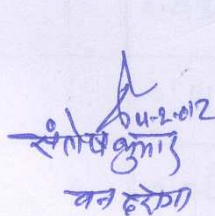 4-2-012
संतोष कुमार
वन दरोगा